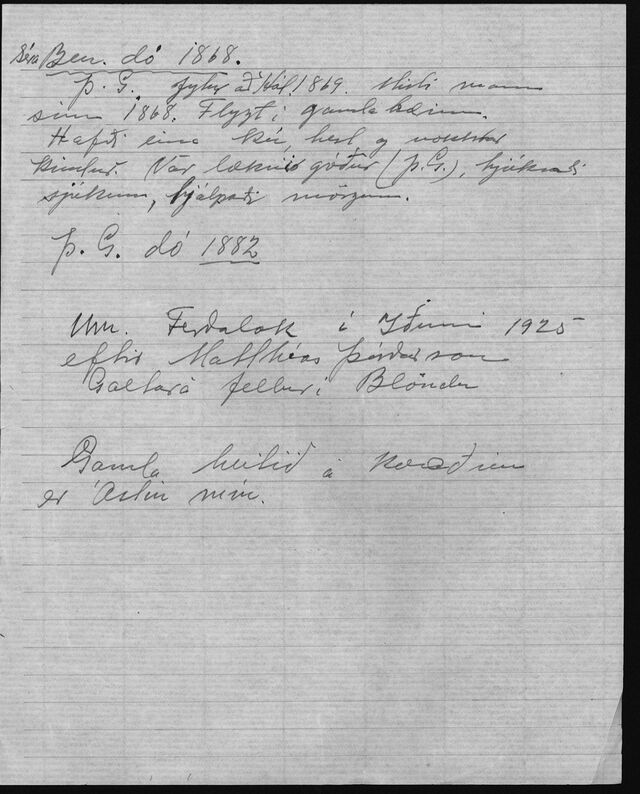 Séra Ben. dó 1868.
Þ. G. flytur að Hól 1869. Misti mann
sinn 1868. Flyzt í gamla bæinn.
Hafði eina kú, hest og nokkrar
kindur. Var læknir góður (Þ. G.), hjúkraði
sjúkum, hjálpaði mörgum.
Þ. G. dó 1882
Um. Ferðalok í Iðunni 1925
eftir Matthías Þórðarson
Galtará fellur í Blöndu
Gamla heitið á kvæðinu
er Ástin mín.